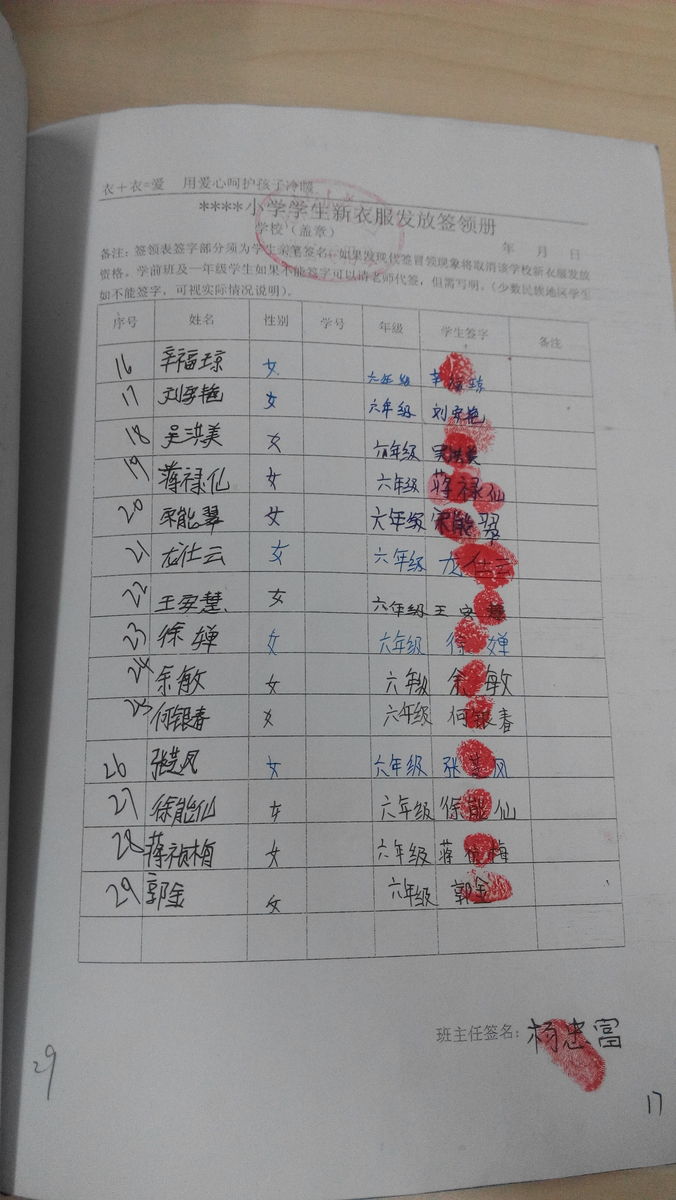 衣+衣=爱 用爱心呵护孩子冷暖
****小学学生新衣服发放签领册
学校（盖章） 年 月 日
备注：签领表签字部分须为学生亲笔签名，如果发现代签冒领现象将取消该学校新衣服发放
资格。学前班及一年级学生如果不能签字可以请老师代签，但需写明。（少数民族地区学生
如不能签字，可视实际情况说明）。
序号 姓名 性别 学号 年级 学生签字 备注
16 辛福琼 女 六年级 辛福琼
17 刘安艳 女 六年级 刘安艳
18 吴洪美 女 六年级 吴洪美
19 蒋禄仙 女 六年级 蒋禄仙
20 宋能翠 女 六年级 宋能翠
21 龙仕云 女 六年级 龙仕云
22 王安慧 女 六年级 王安慧
23 徐婵 女 六年级 徐婵
24 余敏 女 六年级 余敏
25 何银春 女 六年级 何银春
26 张楚风 女 六年级 张 风
27 徐能仙 女 六年级 徐能仙
28 蒋祯梅 女 六年级 蒋 梅
29 郭金 女 六年级 郭金
班主任签名：杨忠富
29
17